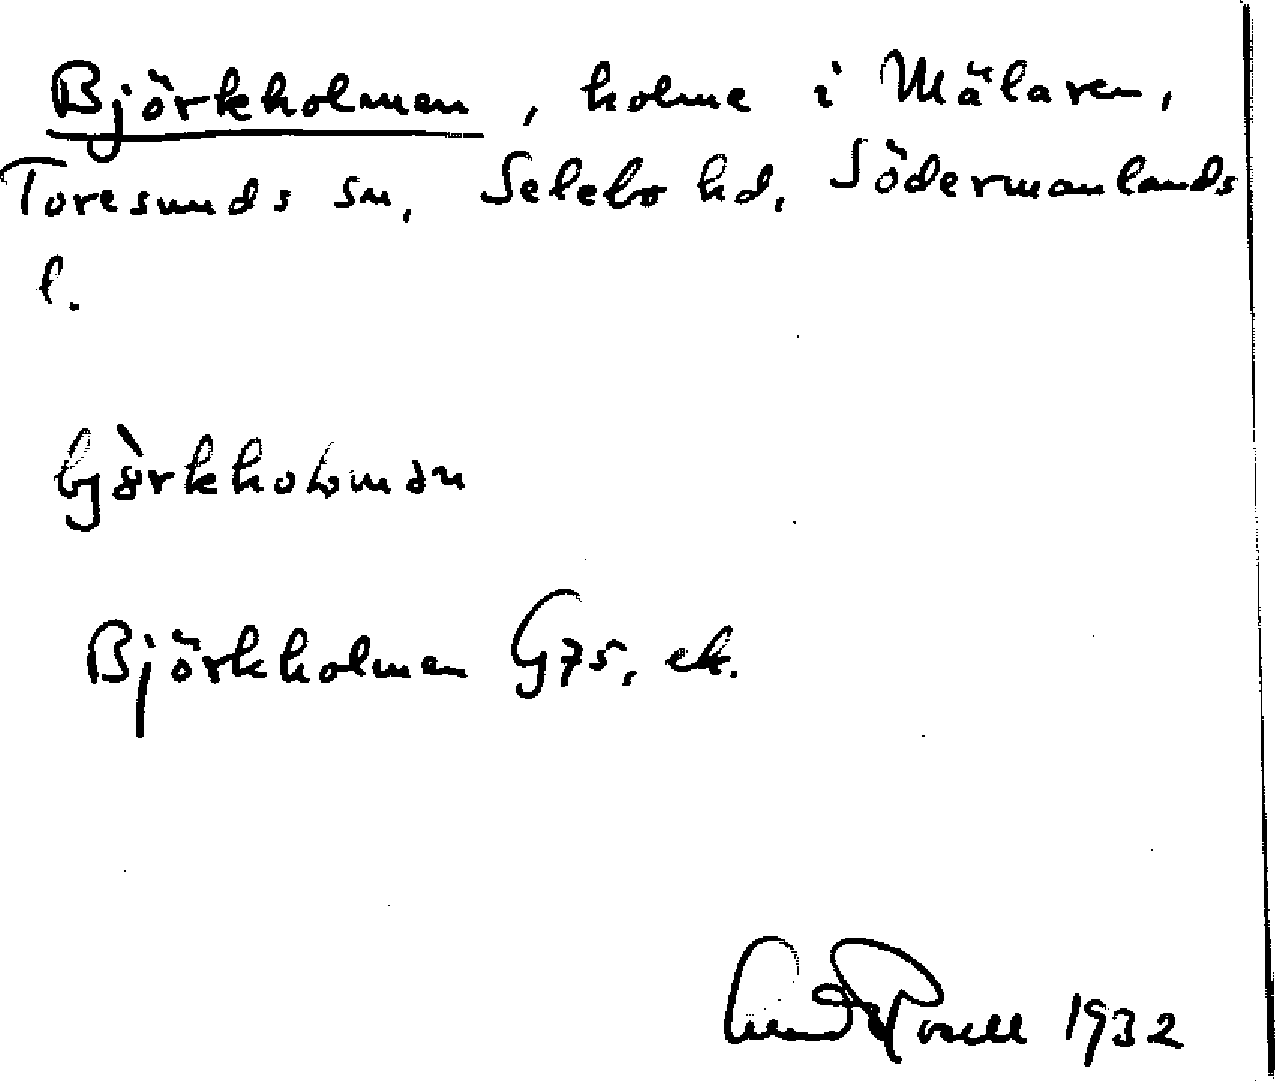 Björkholmen, holme i Mälaren,
Toresunds sn, Selebo hd, Södermanlands
l.
Björkholmen G75, ek.
1932